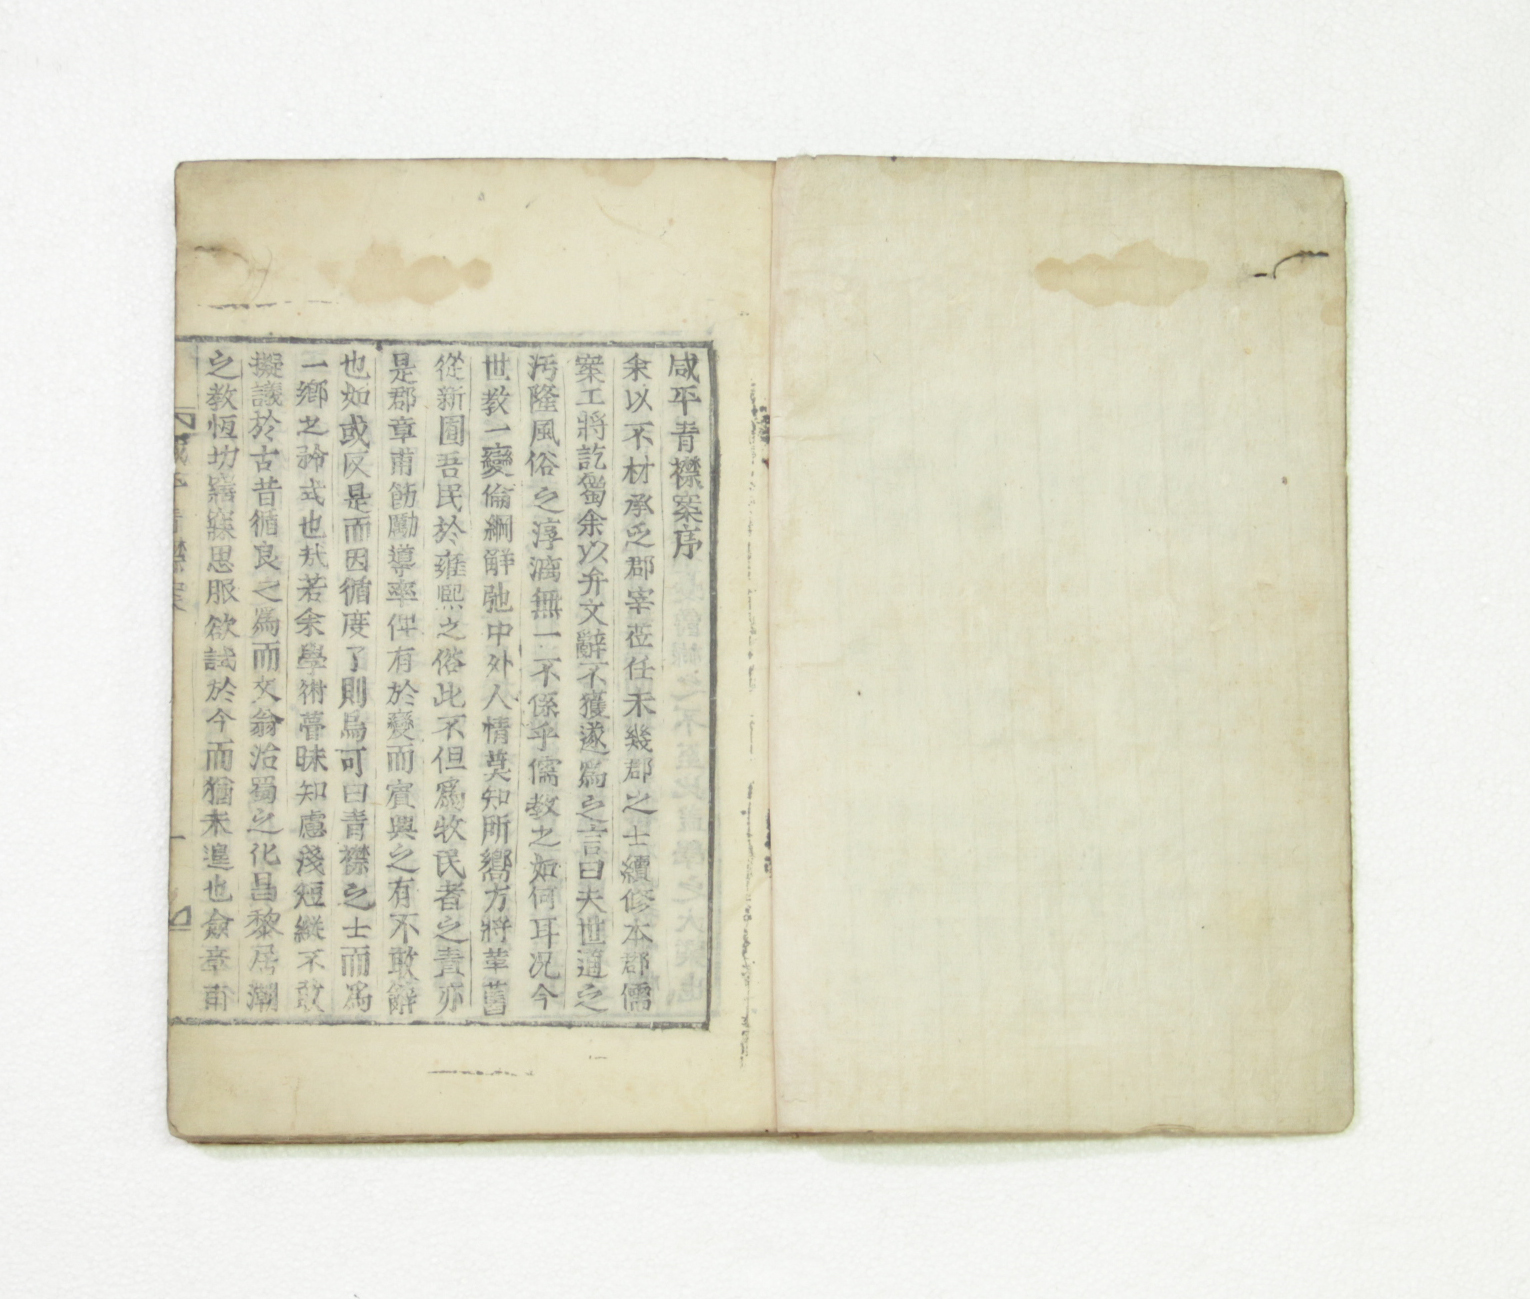 咸平青襟案序
余以不材承乏郡宰莅任未幾郡之士續修本郡儒
案工將訖蜀余以弁文辭不獲遂爲之言曰夫世道之
汚隆風俗之淳漓無一不係乎儒教之如何耳况今
世教一變倫綱解弛中外人情莫知所嚮方將革舊
從新圖吾民於雍熙之俗此不但爲牧民者之責亦
是郡章甫飭勵導率俾有於變而賓興之有不敢辭
也如或反是而因循度了則烏可曰青襟之士而爲
一鄉之矜式也哉若余學術蒙昧知慮淺短縱不敢
擬議於古昔循良之爲而文翁治蜀之化昌黎居潮
之教恆切寤寐思服欲試於今而猶未遑也僉章甫
咸平青襟案
一